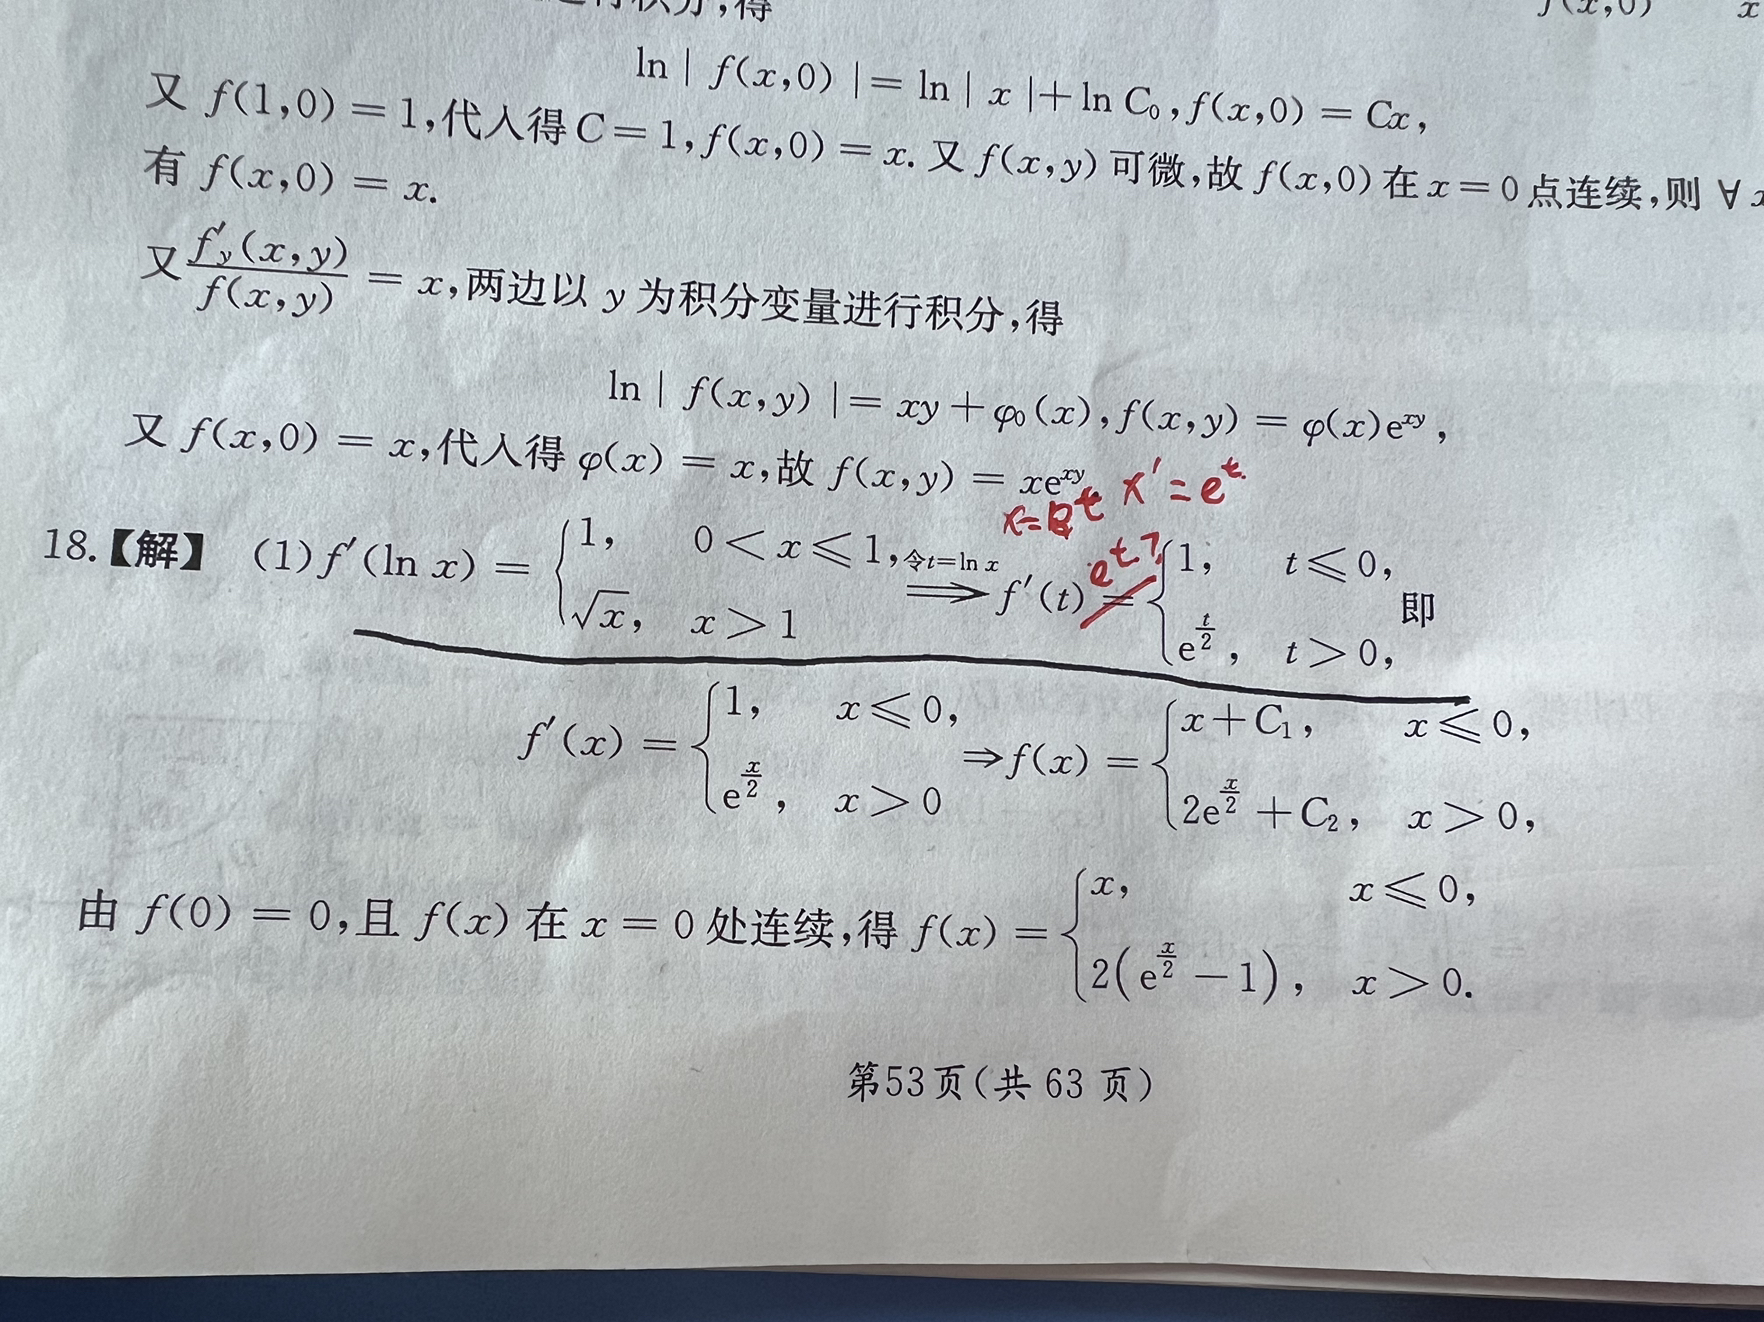 进行积分,得
f(x,0) x
ln | f(x,0) | = ln | x | + ln C₀, f(x,0) = Cx,
又 f(1,0) = 1,代入得 C = 1, f(x,0) = x. 又 f(x,y) 可微,故 f(x,0) 在 x = 0 点连续,则 ∀ x
有 f(x,0) = x.
又 f′y(x,y)/f(x,y) = x,两边以 y 为积分变量进行积分,得
ln | f(x,y) | = xy + φ₀(x), f(x,y) = φ(x)e^{xy},
又 f(x,0) = x,代入得 φ(x) = x,故 f(x,y) = xe^{xy}.
x=e^t x′=e^t
18.【解】 (1) f′(ln x) = { 1, 0 < x ⩽ 1, √x, x > 1 令t=ln x ⟹ f′(t) = e^t? { 1, t ⩽ 0, e^{t/2}, t > 0, 即
f′(x) = { 1, x ⩽ 0, e^{x/2}, x > 0 ⇒ f(x) = { x + C₁, x ⩽ 0, 2e^{x/2} + C₂, x > 0,
由 f(0) = 0,且 f(x) 在 x = 0 处连续,得 f(x) = { x, x ⩽ 0, 2(e^{x/2} − 1), x > 0.
第53页(共 63 页)